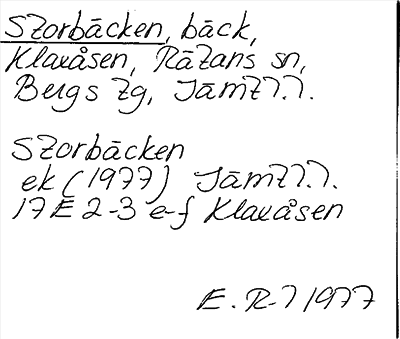 Storbäcken, bäck,
Klaxåsen, Rätans sn,
Bergs tg, Jämtl.l.
Storbäcken
ek (1977) Jämtl.l.
17E 2-3 e-f Klaxåsen
E. R-l 1977